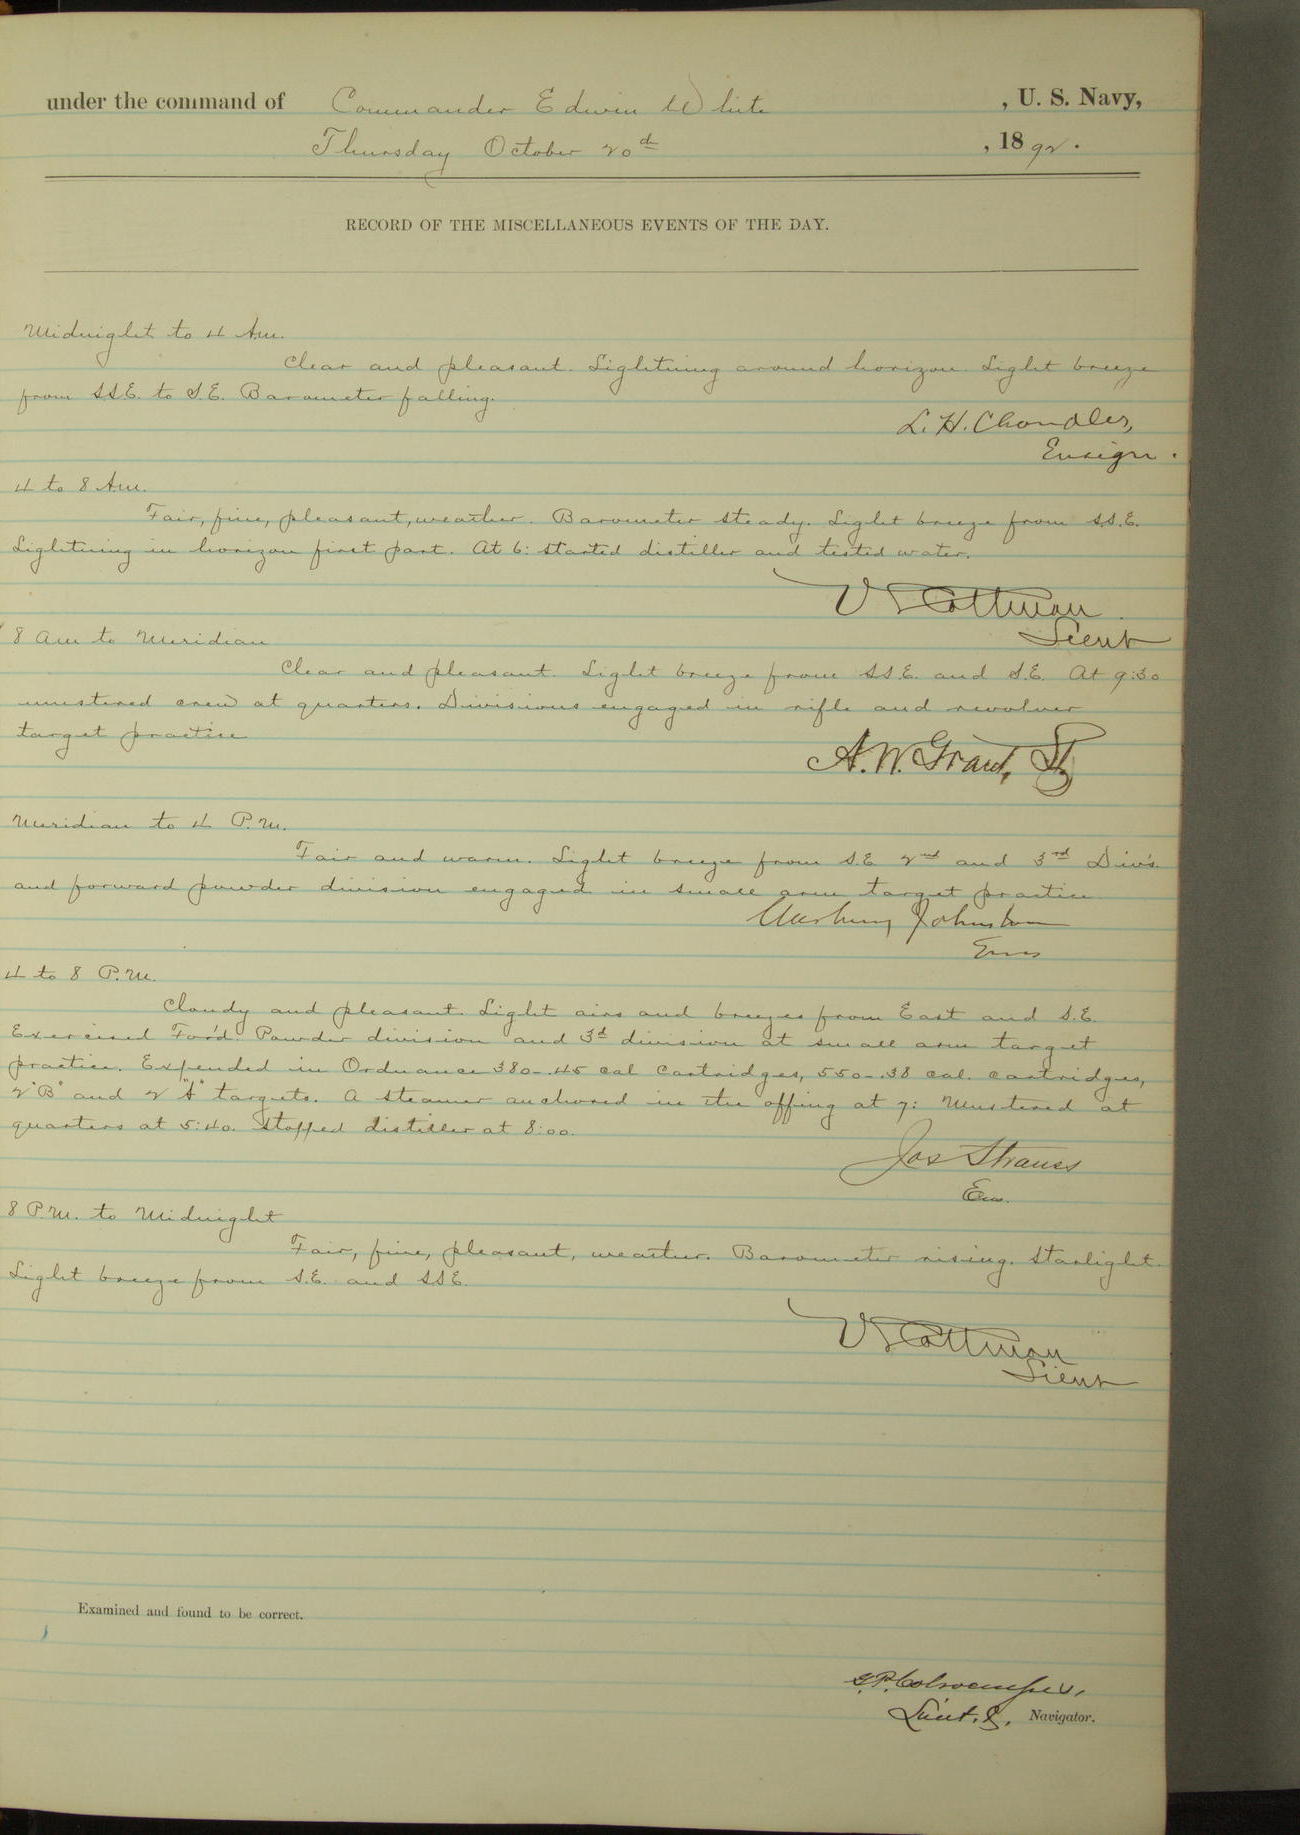 under the command of Commander Edwin White , U. S. Navy,
Thursday October 20th , 1892.
RECORD OF THE MISCELLANEOUS EVENTS OF THE DAY.
Midnight to 4 A.m.
Clear and pleasant. Lightning around horizon. Light breeze
from SSE. to S.E. Barometer falling.
L. H. Chandler,
Ensign.
4 to 8 A.m.
Fair, fine, pleasant, weather. Barometer steady. Light breeze from S.S.E.
Lightning in horizon first part. At 6: started distiller and tested water.
V L Cottman
Lieut
8 am to Meridian
Clear and pleasant. Light breeze from SSE. and S.E. At 9:30
mustered crew at quarters. Divisions engaged in rifle and revolver
target practice
A. W. Grant,
Meridian to 4 P.m.
Fair and warm. Light breeze from S.E 2nd and 3rd Div's.
and forward powder division engaged in small arm target practice
Marbury Johnston
Ens
4 to 8 P.m.
Cloudy and pleasant. Light airs and breezes from East and S.E.
Exercised For'd. Powder division and 3d division at small arm target
practice. Expended in Ordnance 380-.45 cal cartridges, 550-.38 cal. cartridges,
2 "B" and 2 "A" targets. A steamer anchored in the offing at 7: Mustered at
quarters at 5:40. Stopped distiller at 8:00.
Jos Strauss
Ens.
8 P.m. to Midnight
Fair, fine, pleasant, weather. Barometer rising. Starlight.
Light breeze from S.E. and SSE.
V L Cottman
Lieut
Examined and found to be correct.
G.P. Colvocoresses,
Lieut. Navigator.